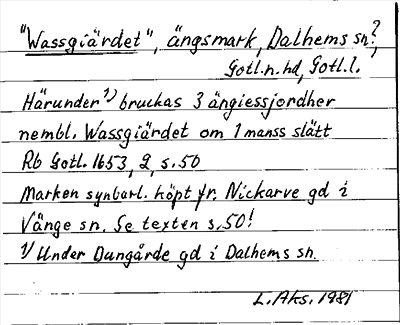 "Wassgiärdet", ängsmark, Dalhems sn?,
Gotl.n.hd, Gotl.l.
Härunder 1) bruckas 3 ängiessjordher
nembl. Wassgiärdet om 1 manss slätt
Rb Gotl. 1653, 2, s.50
Marken synbarl. köpt fr. Nickarve gd i
Vänge sn. Se texten s.50!
1) Under Dungårde gd i Dalhems sn.
L. Aks. 1981